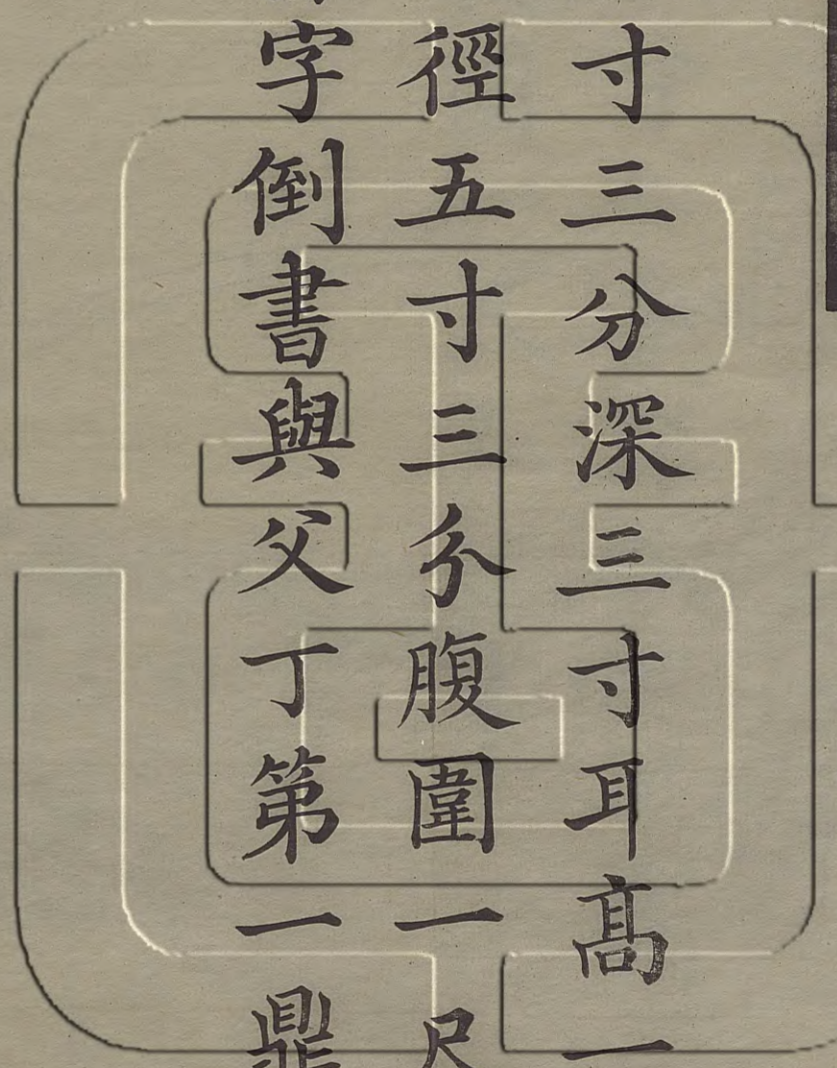 寸三分深三寸耳髙一
徑五寸三分腹圍一尺
字倒書與父丁第一鼎